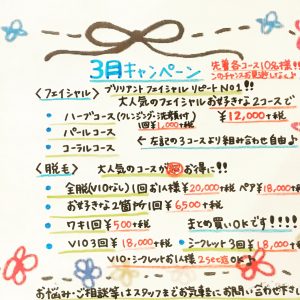 3月キャンペーン
先着各コース10名様!!
このチャンスお見逃しなく♪
〈フェイシャル〉 ブリリアント フェイシャル リピートNO1!!
大人気のフェイシャルお好きな2コースで
・ハーブコース(クレンジング・洗顔付) ¥12,000+税
・パールコース 1回¥1,000+税
・コーラルコース ← 左記の3コースより組み合せ自由♪
〈脱毛〉 大人気のコースがお得に!!
・全脱(VIOなし)1回お1人様¥20,000+税 ペア¥18,000+税
・お好きな2箇所1回¥6500+税
・ワキ1回¥500+税 まとめ買いOKです!!!!
・VIO3回¥18,000+税 ・シークレット3回¥18,000+税
VIO・シークレットお1人様2set迄OK♪
お悩み・ご相談等はスタッフまでお気軽にお問い合わせ下